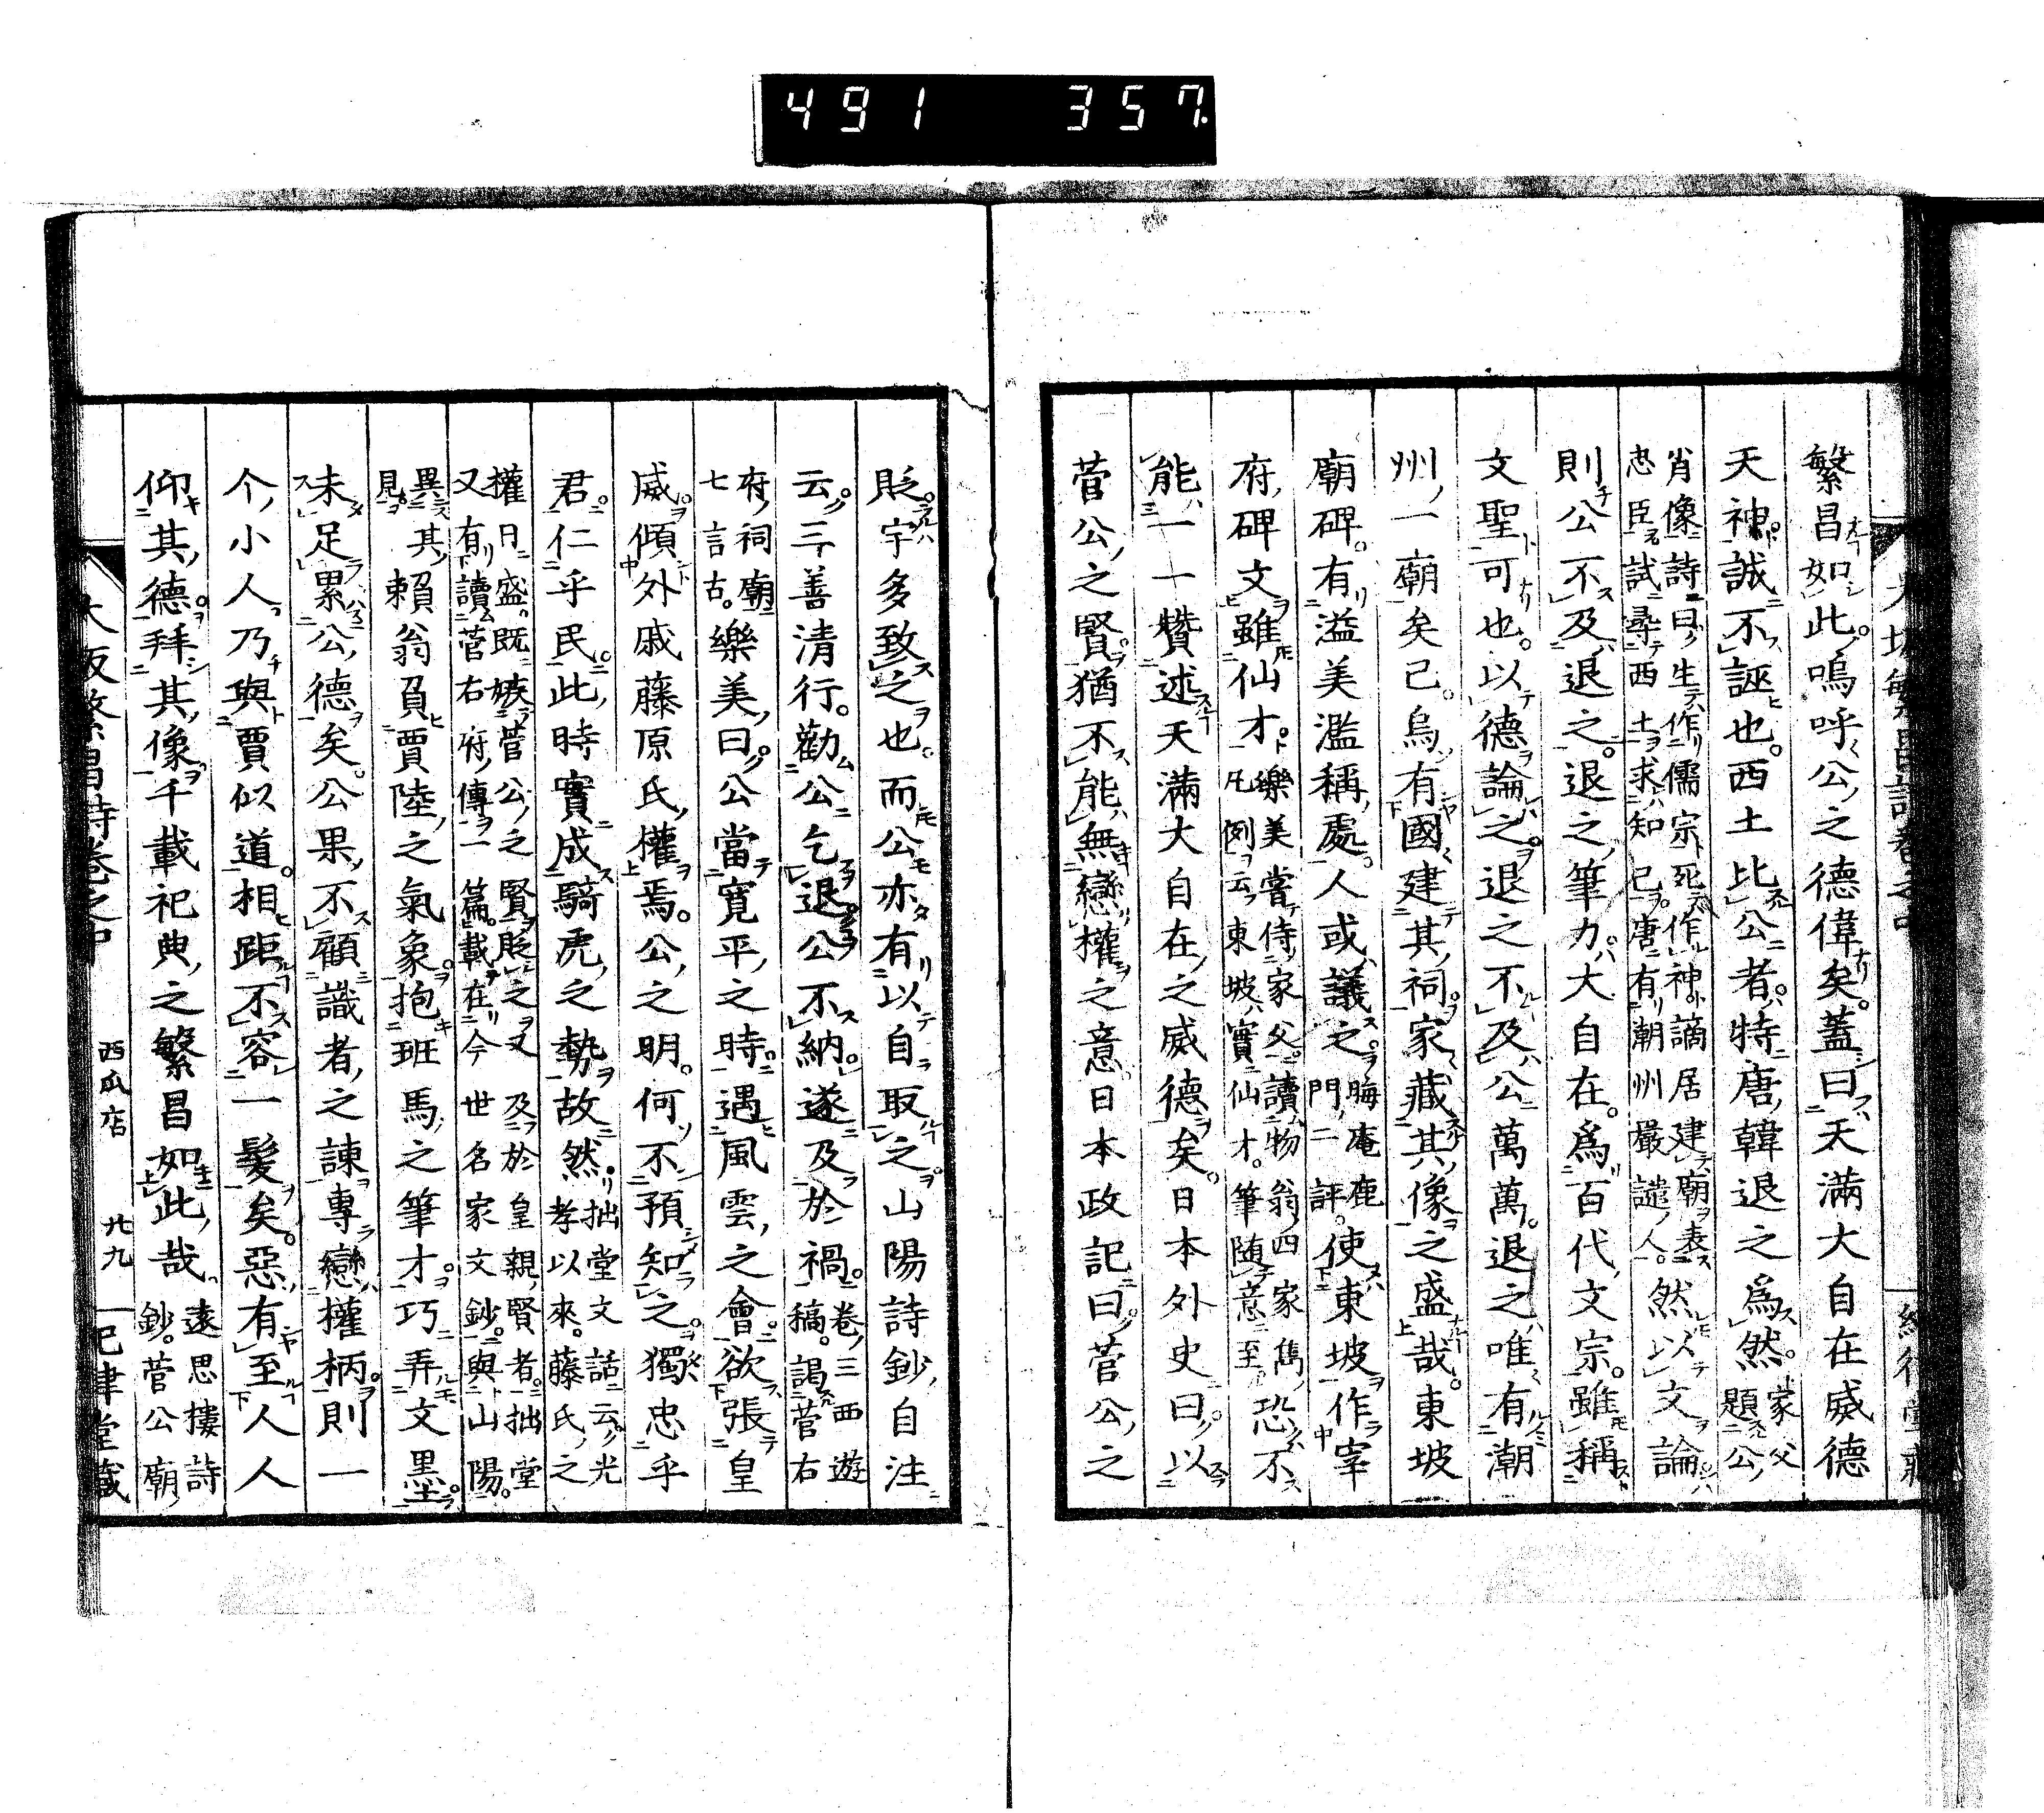 491 357.
繁昌如此。嗚呼公之德偉矣。蓋曰天滿大自在威德
天神。誠不誣也。西土比公者。特唐韓退之爲然。家父題公
肖像詩曰。生作儒宗死作神。謫居建廟表
忠臣。試尋西土求知己。唐有潮州嚴譴人。然以文論
則公不及退之。退之筆力大自在。爲百代文宗。雖稱
文聖可也。以德論之。退之不及公萬萬。退之唯有潮
州一廟矣已。烏有國建其祠。家藏其像之盛哉。東坡
廟碑。有溢美濫稱處。人或議之。晦庵鹿門二評。使東坡作宰
府碑文。雖仙才。樂美嘗侍家父。讀物翁四家雋
凡例云。東坡實仙才。筆隨意至。恐不
能一一贊述天滿大自在之威德矣。日本外史曰。以
菅公之賢。猶不能無戀權之意。日本政記曰。菅公之
貶。宇多致之也。而公亦有以自取之。山陽詩鈔自注
云。三善清行。勸公乞退。公不納。遂及於禍。卷三西遊稿。謁菅右
府祠廟七言古。樂美曰。公當寬平之時。遇風雲之會。欲張皇
威傾外戚藤原氏權焉。公之明。何不預知之。獨忠乎
君。仁乎民。此時實成騎虎之勢。故然。拙堂文話云。光孝以來。藤氏之
權日盛。既嫉菅公之賢貶之。又及於皇親賢者。拙堂
又有讀菅右府傳一篇。載在今世名家文鈔。與山陽。
異其見。賴翁負賈陸之氣象。抱班馬之筆才。巧弄文墨。
未足累公德矣。公果不顧識者之諫。專戀權柄。則一
个小人。乃與賈似道。相距不容一髮矣。惡有至人人
仰其德。拜其像。千載祀典之繁昌如此哉。遠思樓詩鈔。菅公廟
大阪繁昌詩卷之中
西瓜店
廿九